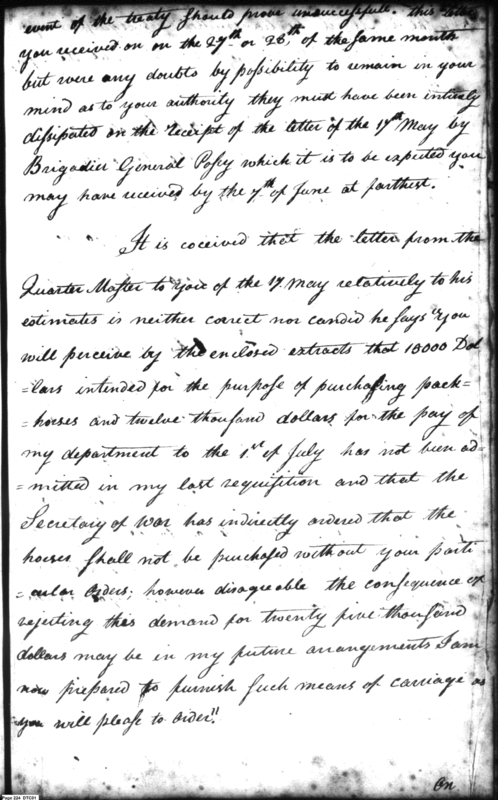 event of the treaty should prove unsuccessfull. This letter
you received on on the 27th or 28th, of the same month
but were any doubts by possibility to remain in your
mind as to your authority they must have been intirely
dissipated on the receipt of the letter of the 17th May by
Brigadier General Posey which it is to be expected you
may have received by the 7th of June at farthest.
It is coceived that the letter from the
Quarter Master to you of the 17. May relatively to his
estimates is neither correct nor candid he says "you
will perceive by the enclosed extracts that 13000 Dol
=lars intended for the purpose of purchasing pack=
=horses and twelve thousand dollars for the pay of
my department to the 1st of July has not been ad=
=mitted in my last requisition and that the
Secretary of War has indirectly ordered that the
horses shall not be purchased without your parti
=cular orders; however disagreable the consequence of
rejecting this demand for twenty five thousand
dollars may be in my future arrangements I am
now prepared to furnish such means of carriage as
you will please to order."
On
Page 224 DTC01